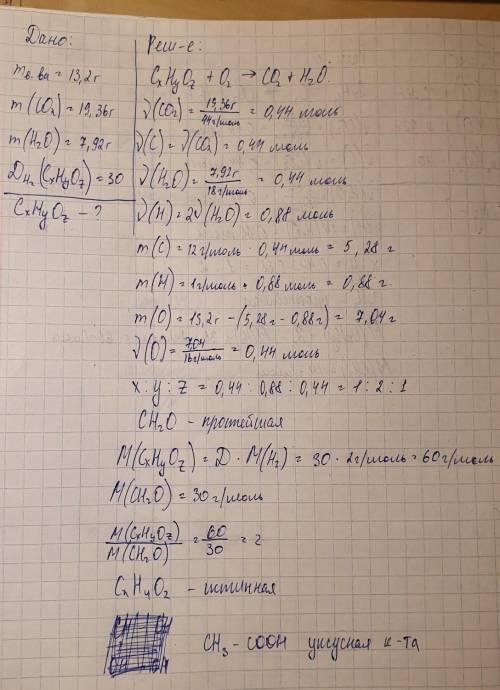 Дано:
m в-ва = 13,2г
m(CO₂) = 19,36г
m(H₂O) = 7,92г
D_H₂(CxHyOz) = 30
CxHyOz - ?
Реш-е:
CxHyOz + O₂ → CO₂ + H₂O
ν(CO₂) = 19,36г / 44г/моль = 0,44 моль
ν(C) = ν(CO₂) = 0,44 моль
ν(H₂O) = 7,92г / 18г/моль = 0,44 моль
ν(H) = 2ν(H₂O) = 0,88 моль
m(C) = 12г/моль · 0,44моль = 5,28 г
m(H) = 1г/моль · 0,88 моль = 0,88г.
m(O) = 13,2г - (5,28г - 0,88г) = 7,04г
ν(O) = 7,04 / 16г/моль = 0,44 моль
x : y : z = 0,44 : 0,88 : 0,44 = 1 : 2 : 1
CH₂O - простейшая
M(CxHyOz) = D · M(H₂) = 30 · 2г/моль = 60г/моль
M(CH₂O) = 30г/моль
M(CxHyOz) / M(CH₂O) = 60 / 30 = 2
C₂H₄O₂ - истинная
CH₃ - COOH уксусная к-та